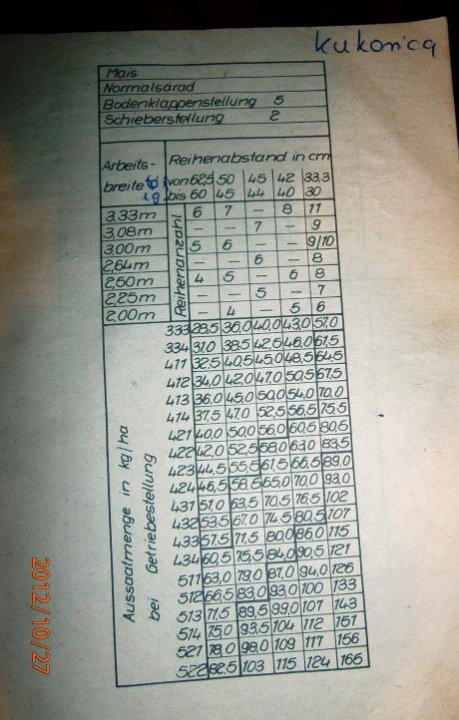 kukorica
Mais
Normalsärad
Bodenklappenstellung 5
Schieberstellung 2
Arbeits- Reihenabstand in cm
breite von 62,5 50 45 42 33,3
bis 60 45 44 40 30
Reihenanzahl
3,33m 6 7 – 8 11
3,08m – – 7 – 9
3,00m 5 6 – – 9/10
2,64m – – 6 – 8
2,50m 4 5 – 6 8
2,25m – – 5 – 7
2,00m – 4 – 5 6
Aussaatmenge in kg/ha
bei Getriebestellung
333 28,5 36,0 40,0 43,0 57,0
334 31,0 38,5 42,5 46,0 61,5
411 32,5 40,5 45,0 48,5 64,5
412 34,0 42,0 47,0 50,5 67,5
413 36,0 45,0 50,0 54,0 70,0
414 37,5 47,0 52,5 56,5 75,5
421 40,0 50,0 56,0 60,5 80,5
422 42,0 52,5 58,0 63,0 83,5
423 44,5 55,5 61,5 66,5 89,0
424 46,5 58,5 65,0 70,0 93,0
431 51,0 63,5 70,5 76,5 102
432 53,5 67,0 74,5 80,5 107
433 57,5 71,5 80,0 86,0 115
434 60,5 75,5 84,0 90,5 121
511 63,0 79,0 87,0 94,0 126
512 66,5 83,0 93,0 100 133
513 71,5 89,5 99,0 107 143
514 75,0 93,5 104 112 151
521 78,0 98,0 109 117 156
522 82,5 103 115 124 165
2012/10/27